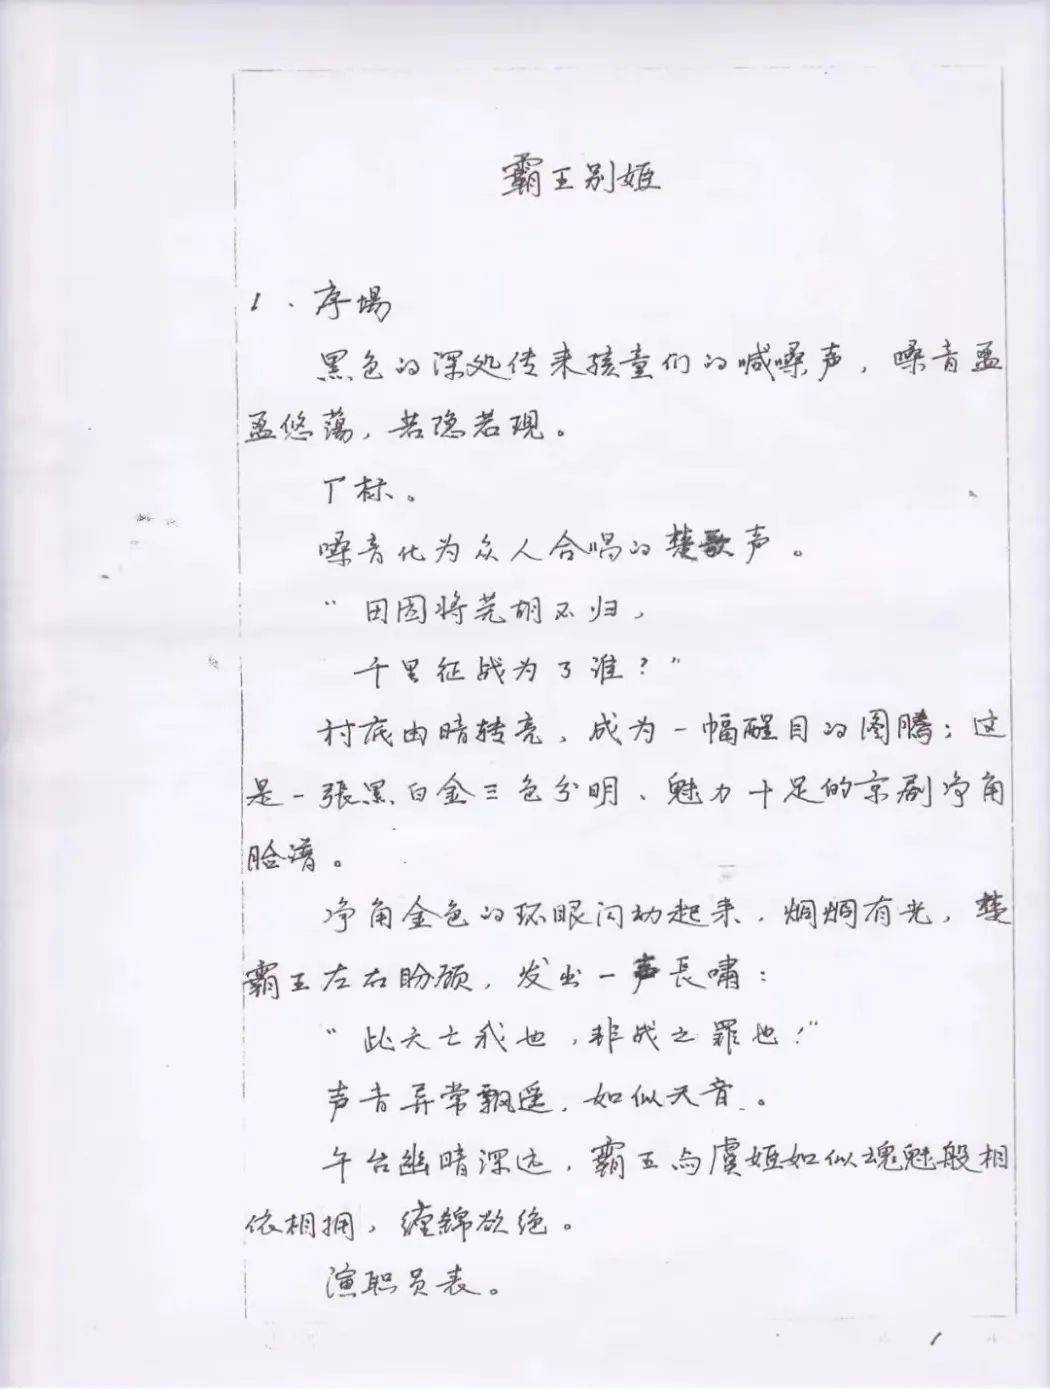 霸王别姬
1、序場
黑色的深处传来孩童们的喊嗓声，嗓音盈
盈悠荡，若隐若现。
厂标。
嗓音化为众人合唱的楚歌声。
“田园将芜胡不归，
千里征战为了谁？”
衬底由暗转亮，成为一幅醒目的图腾；这
是一張黑白金三色分明、魅力十足的京剧净角
脸谱。
净角金色的环眼闪动起来，炯炯有光，楚
霸王左右盼顾，发出一声長啸：
“此天亡我也，非战之罪也！”
声音异常飘遥，如似天音。
午台幽暗深远，霸王与虞姬如似魂魅般相
依相拥，缠綿欲绝。
演职员表。
1